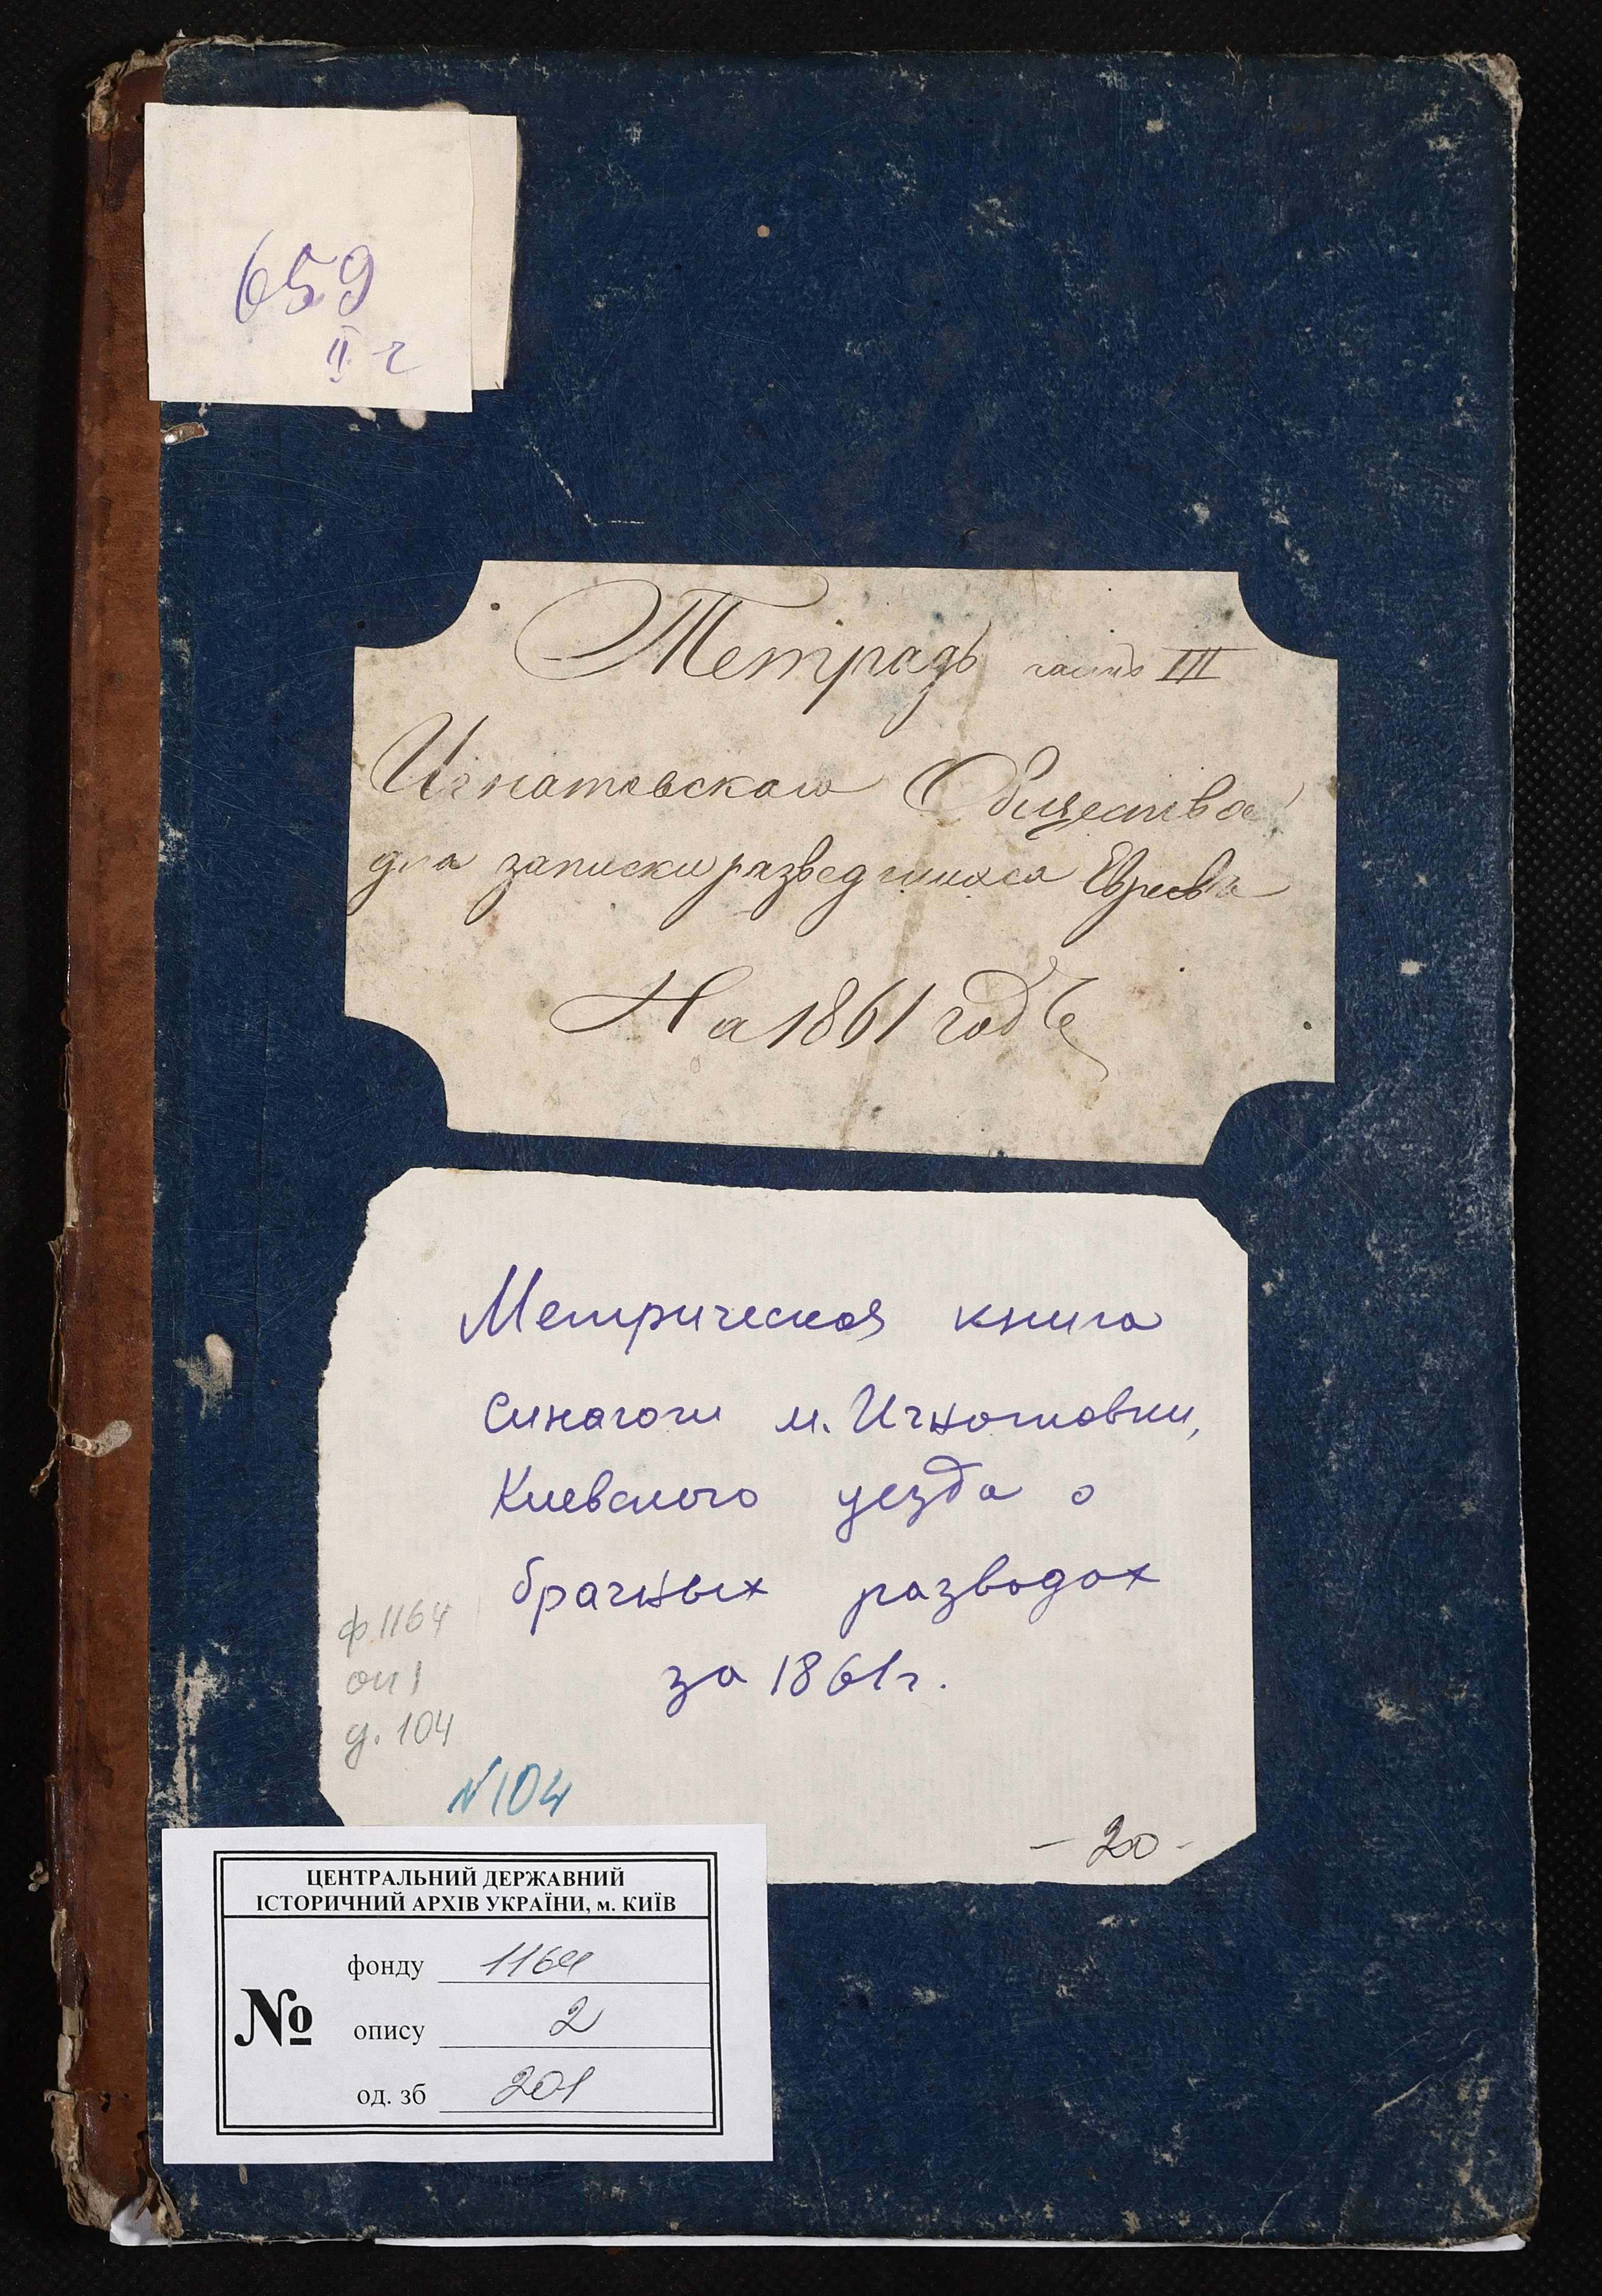 659
II ч
Тетрадь часть III
Игнатовскаго Общества
для записки разведшихся Евреевъ
На 1861 годъ
Метрическая книга
синагоги м. Игнатовки,
Киевского уезда о
брачных разводах
за 1861г.
ф 1164
оп 1
д. 104
N104
- 20 -
ЦЕНТРАЛЬНИЙ ДЕРЖАВНИЙ
ІСТОРИЧНИЙ АРХІВ УКРАЇНИ, м. КИЇВ
№
фонду 1164
опису 2
од. зб 201